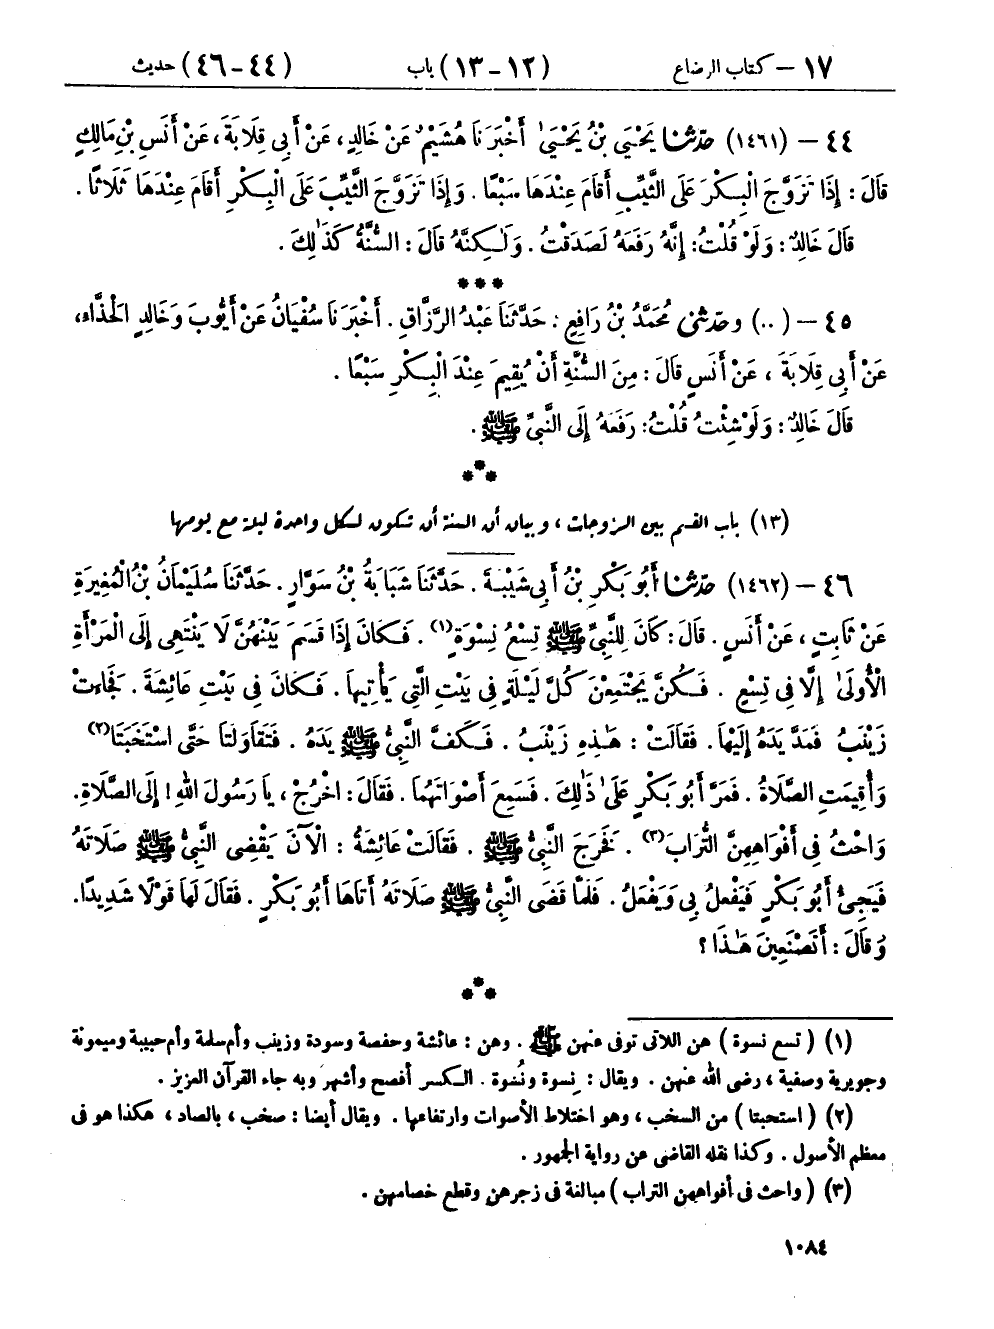 ١٧ – كتاب الرضاع (١٢ – ١٣) باب (٤٤ – ٤٦) حديث
٤٤ – (١٤٦١) حَدَّثَنَا يَحْيَى بْنُ يَحْيَىٰ أَخْبَرَنَا هُشَيْمٌ عَنْ خَالِدٍ، عَنْ أَبِي قِلَابَةَ، عَنْ أَنَسِ بْنِ مَالِكٍ
قَالَ: إِذَا تَزَوَّجَ الْبِكْرَ عَلَى الثَّيِّبِ أَقَامَ عِنْدَهَا سَبْعًا. وَإِذَا تَزَوَّجَ الثَّيِّبَ عَلَى الْبِكْرِ أَقَامَ عِنْدَهَا ثَلَاثًا.
قَالَ خَالِدٌ: وَلَوْ قُلْتُ: إِنَّهُ رَفَعَهُ لَصَدَقْتُ. وَلَـٰكِنَّهُ قَالَ: السُّنَّةُ كَذَٰلِكَ.
***
٤٥ – (..) وحَدَّثَنِي مُحَمَّدُ بْنُ رَافِعٍ: حَدَّثَنَا عَبْدُ الرَّزَّاقِ. أَخْبَرَنَا سُفْيَانُ عَنْ أَيُّوبَ وَخَالِدٍ الْحَذَّاءِ،
عَنْ أَبِي قِلَابَةَ، عَنْ أَنَسٍ قَالَ: مِنَ السُّنَّةِ أَنْ يُقِيمَ عِنْدَ الْبِكْرِ سَبْعًا.
قَالَ خَالِدٌ: وَلَوْ شِئْتُ قُلْتُ: رَفَعَهُ إِلَى النَّبِيِّ ﷺ.
***
(١٣) باب القسم بين الزوجات، وبيان أن السنة أن تكون لكل واحدة ليلة مع يومها
٤٦ – (١٤٦٢) حَدَّثَنَا أَبُو بَكْرِ بْنُ أَبِي شَيْبَةَ. حَدَّثَنَا شَبَابَةُ بْنُ سَوَّارٍ. حَدَّثَنَا سُلَيْمَانُ بْنُ الْمُغِيرَةِ
عَنْ ثَابِتٍ، عَنْ أَنَسٍ. قَالَ: كَانَ لِلنَّبِيِّ ﷺ تِسْعُ نِسْوَةٍ(١). فَكَانَ إِذَا قَسَمَ بَيْنَهُنَّ لَا يَنْتَهِي إِلَى الْمَرْأَةِ
الْأُولَىٰ إِلَّا فِي تِسْعٍ. فَكُنَّ يَجْتَمِعْنَ كُلَّ لَيْلَةٍ فِي بَيْتِ الَّتِي يَأْتِيهَا. فَكَانَ فِي بَيْتِ عَائِشَةَ. فَجَاءَتْ
زَيْنَبُ فَمَدَّ يَدَهُ إِلَيْهَا. فَقَالَتْ: هَـٰذِهِ زَيْنَبُ. فَكَفَّ النَّبِيُّ ﷺ يَدَهُ. فَتَقَاوَلَتَا حَتَّى اسْتَخَبَتَا(٢)
وَأُقِيمَتِ الصَّلَاةُ. فَمَرَّ أَبُو بَكْرٍ عَلَىٰ ذَٰلِكَ. فَسَمِعَ أَصْوَاتَهُمَا. فَقَالَ: اخْرُجْ، يَا رَسُولَ اللهِ! إِلَى الصَّلَاةِ.
وَاحْثُ فِي أَفْوَاهِهِنَّ التُّرَابَ(٣). فَخَرَجَ النَّبِيُّ ﷺ. فَقَالَتْ عَائِشَةُ: الْآنَ يَقْضِي النَّبِيُّ ﷺ صَلَاتَهُ
فَيَجِيءُ أَبُو بَكْرٍ فَيَفْعَلُ بِي وَيَفْعَلُ. فَلَمَّا قَضَى النَّبِيُّ ﷺ صَلَاتَهُ أَتَاهَا أَبُو بَكْرٍ. فَقَالَ لَهَا قَوْلًا شَدِيدًا.
وَقَالَ: أَتَصْنَعِينَ هَـٰذَا؟
***
(١) (تسع نسوة) هن اللاتى توفى عنهن ﷺ. وهن: عائشة وحفصة وسودة وزينب وأم سلمة وأم حبيبة وميمونة
وجويرية وصفية، رضى الله عنهن. ويقال: نِسوة ونُسْوة. الكسر أفصح وأشهر وبه جاء القرآن العزيز.
(٢) (استخبتا) من السخب، وهو اختلاط الأصوات وارتفاعها. ويقال أيضا: صخب، بالصاد، هكذا هو فى
معظم الأصول. وكذا نقله القاضى عن رواية الجمهور.
(٣) (واحث فى أفواههن التراب) مبالغة فى زجرهن وقطع خصامهن.
١٠٨٤